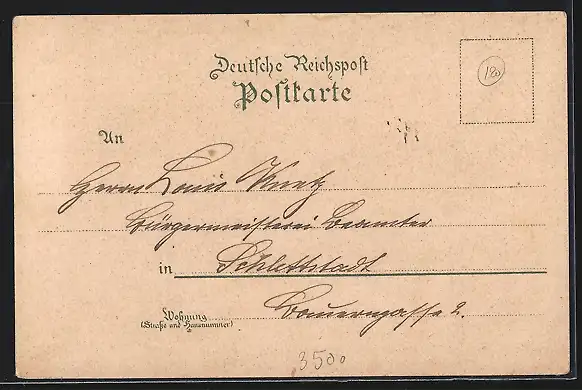 Deutsche Reichspost
Postkarte
180
An
Herrn Louis Kuntz
Bürgermeisterei Beamter
in Schlettstadt
Wohnung
(Straße und Hausnummer)
Bauerngasse 2.
3500